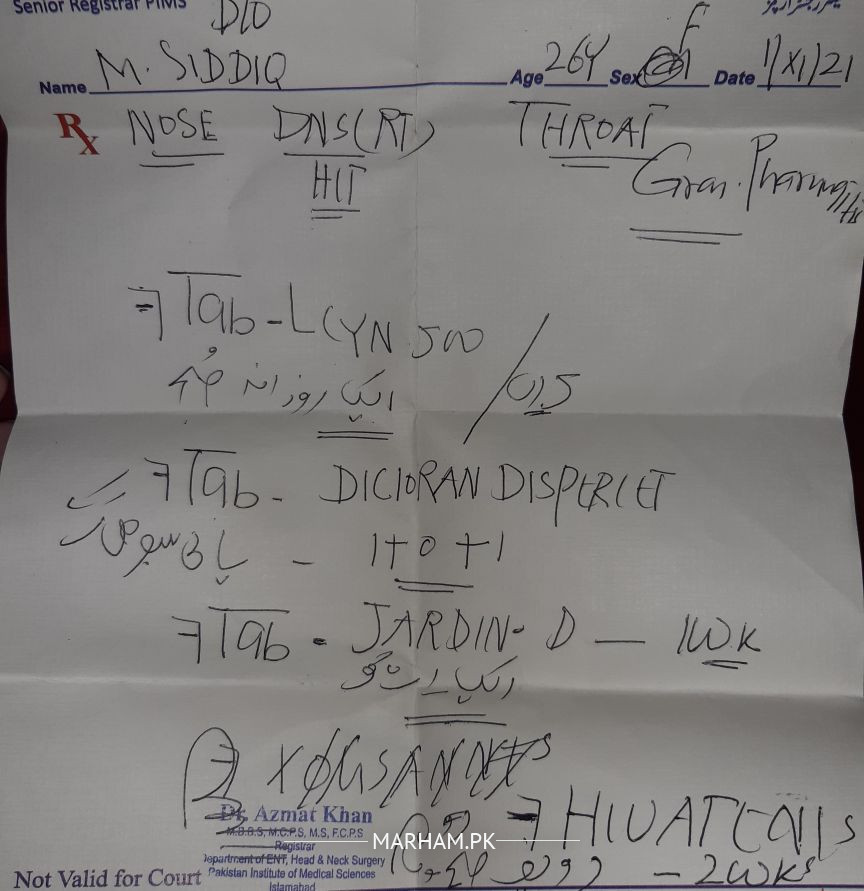 Senior Registrar PIMS
D/O
Name M. SIDDIQ Age 26Y Sex F Date 1/XI/21
Rx NOSE DNS(RT) THROAT
HIT Gran. Pharyngitis
Tab - LCYN 500
ایک روزانہ صبح
/ 5
Tab - DICLORAN DISPERLET
1+0+1
Tab - JARDIN-D — 1WK
ایک رات کو
Dr. Azmat Khan
M.B.B.S, M.C.P.S, M.S, F.C.P.S
Registrar
Department of ENT, Head & Neck Surgery
Pakistan Institute of Medical Sciences
Islamabad
MARHAM.PK
- 2WKs
Not Valid for Court